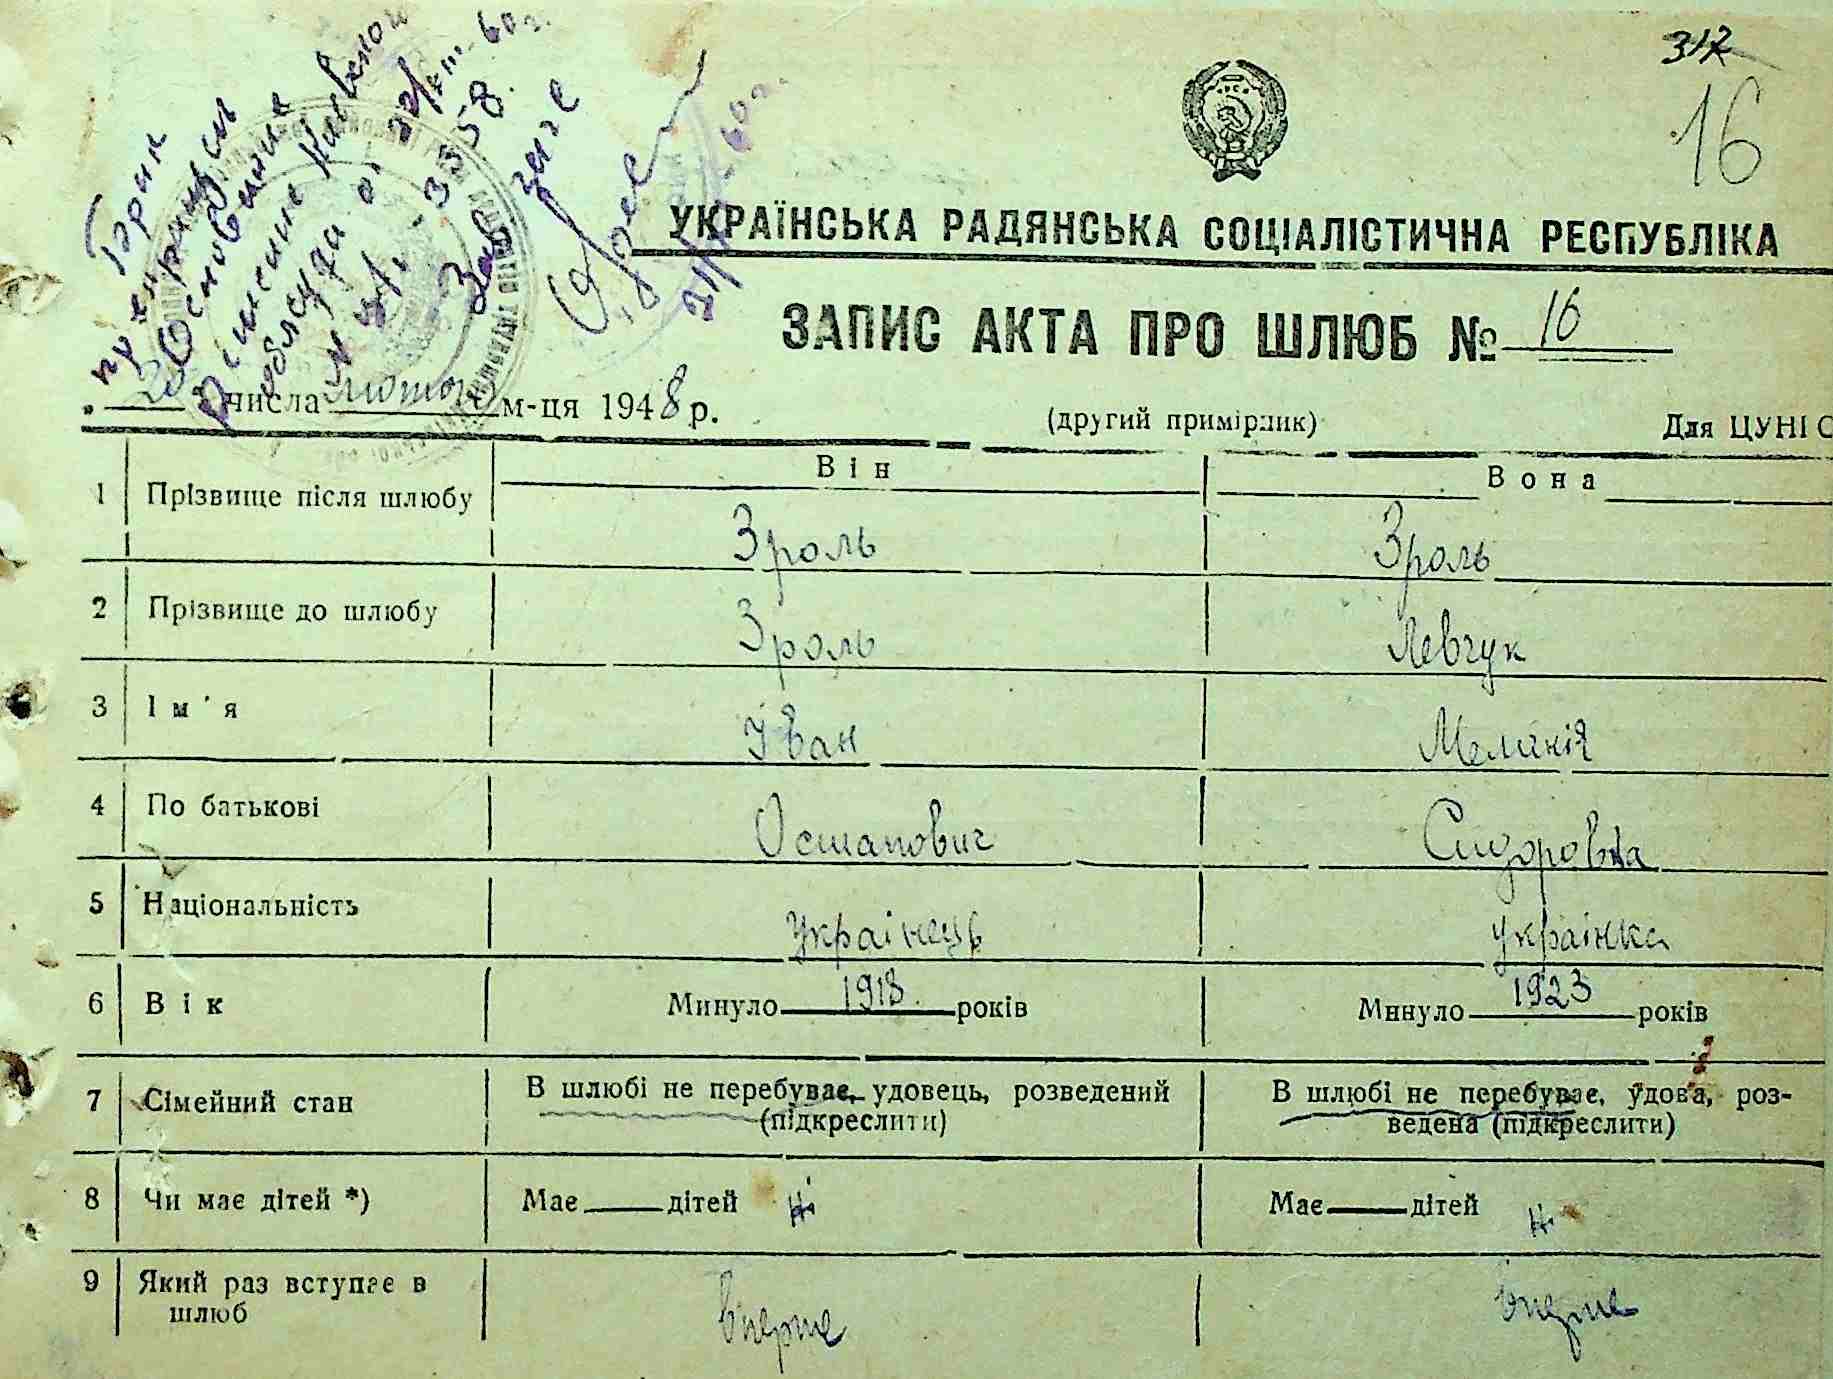 317
16
Брак
Основание
УКРАЇНСЬКА РАДЯНСЬКА СОЦІАЛІСТИЧНА РЕСПУБЛІКА
ЗАПИС АКТА ПРО ШЛЮБ № 16
числа лютого м-ця 1948 р.
(другий примірник) Для ЦУНІО
Він Вона
1 Прізвище після шлюбу Зроль Зроль
2 Прізвище до шлюбу Зроль Левчук
3 Ім'я Іван Меланія
4 По батькові Остапович Сидоровна
5 Національність українець українка
6 Вік Минуло 1918 років Минуло 1923 років
7 Сімейний стан В шлюбі не перебуває, удовець, розведений (підкреслити) В шлюбі не перебуває, удова, розведена (підкреслити)
8 Чи має дітей *) Має дітей ні Має дітей ні
9 Який раз вступає в шлюб вперше вперше